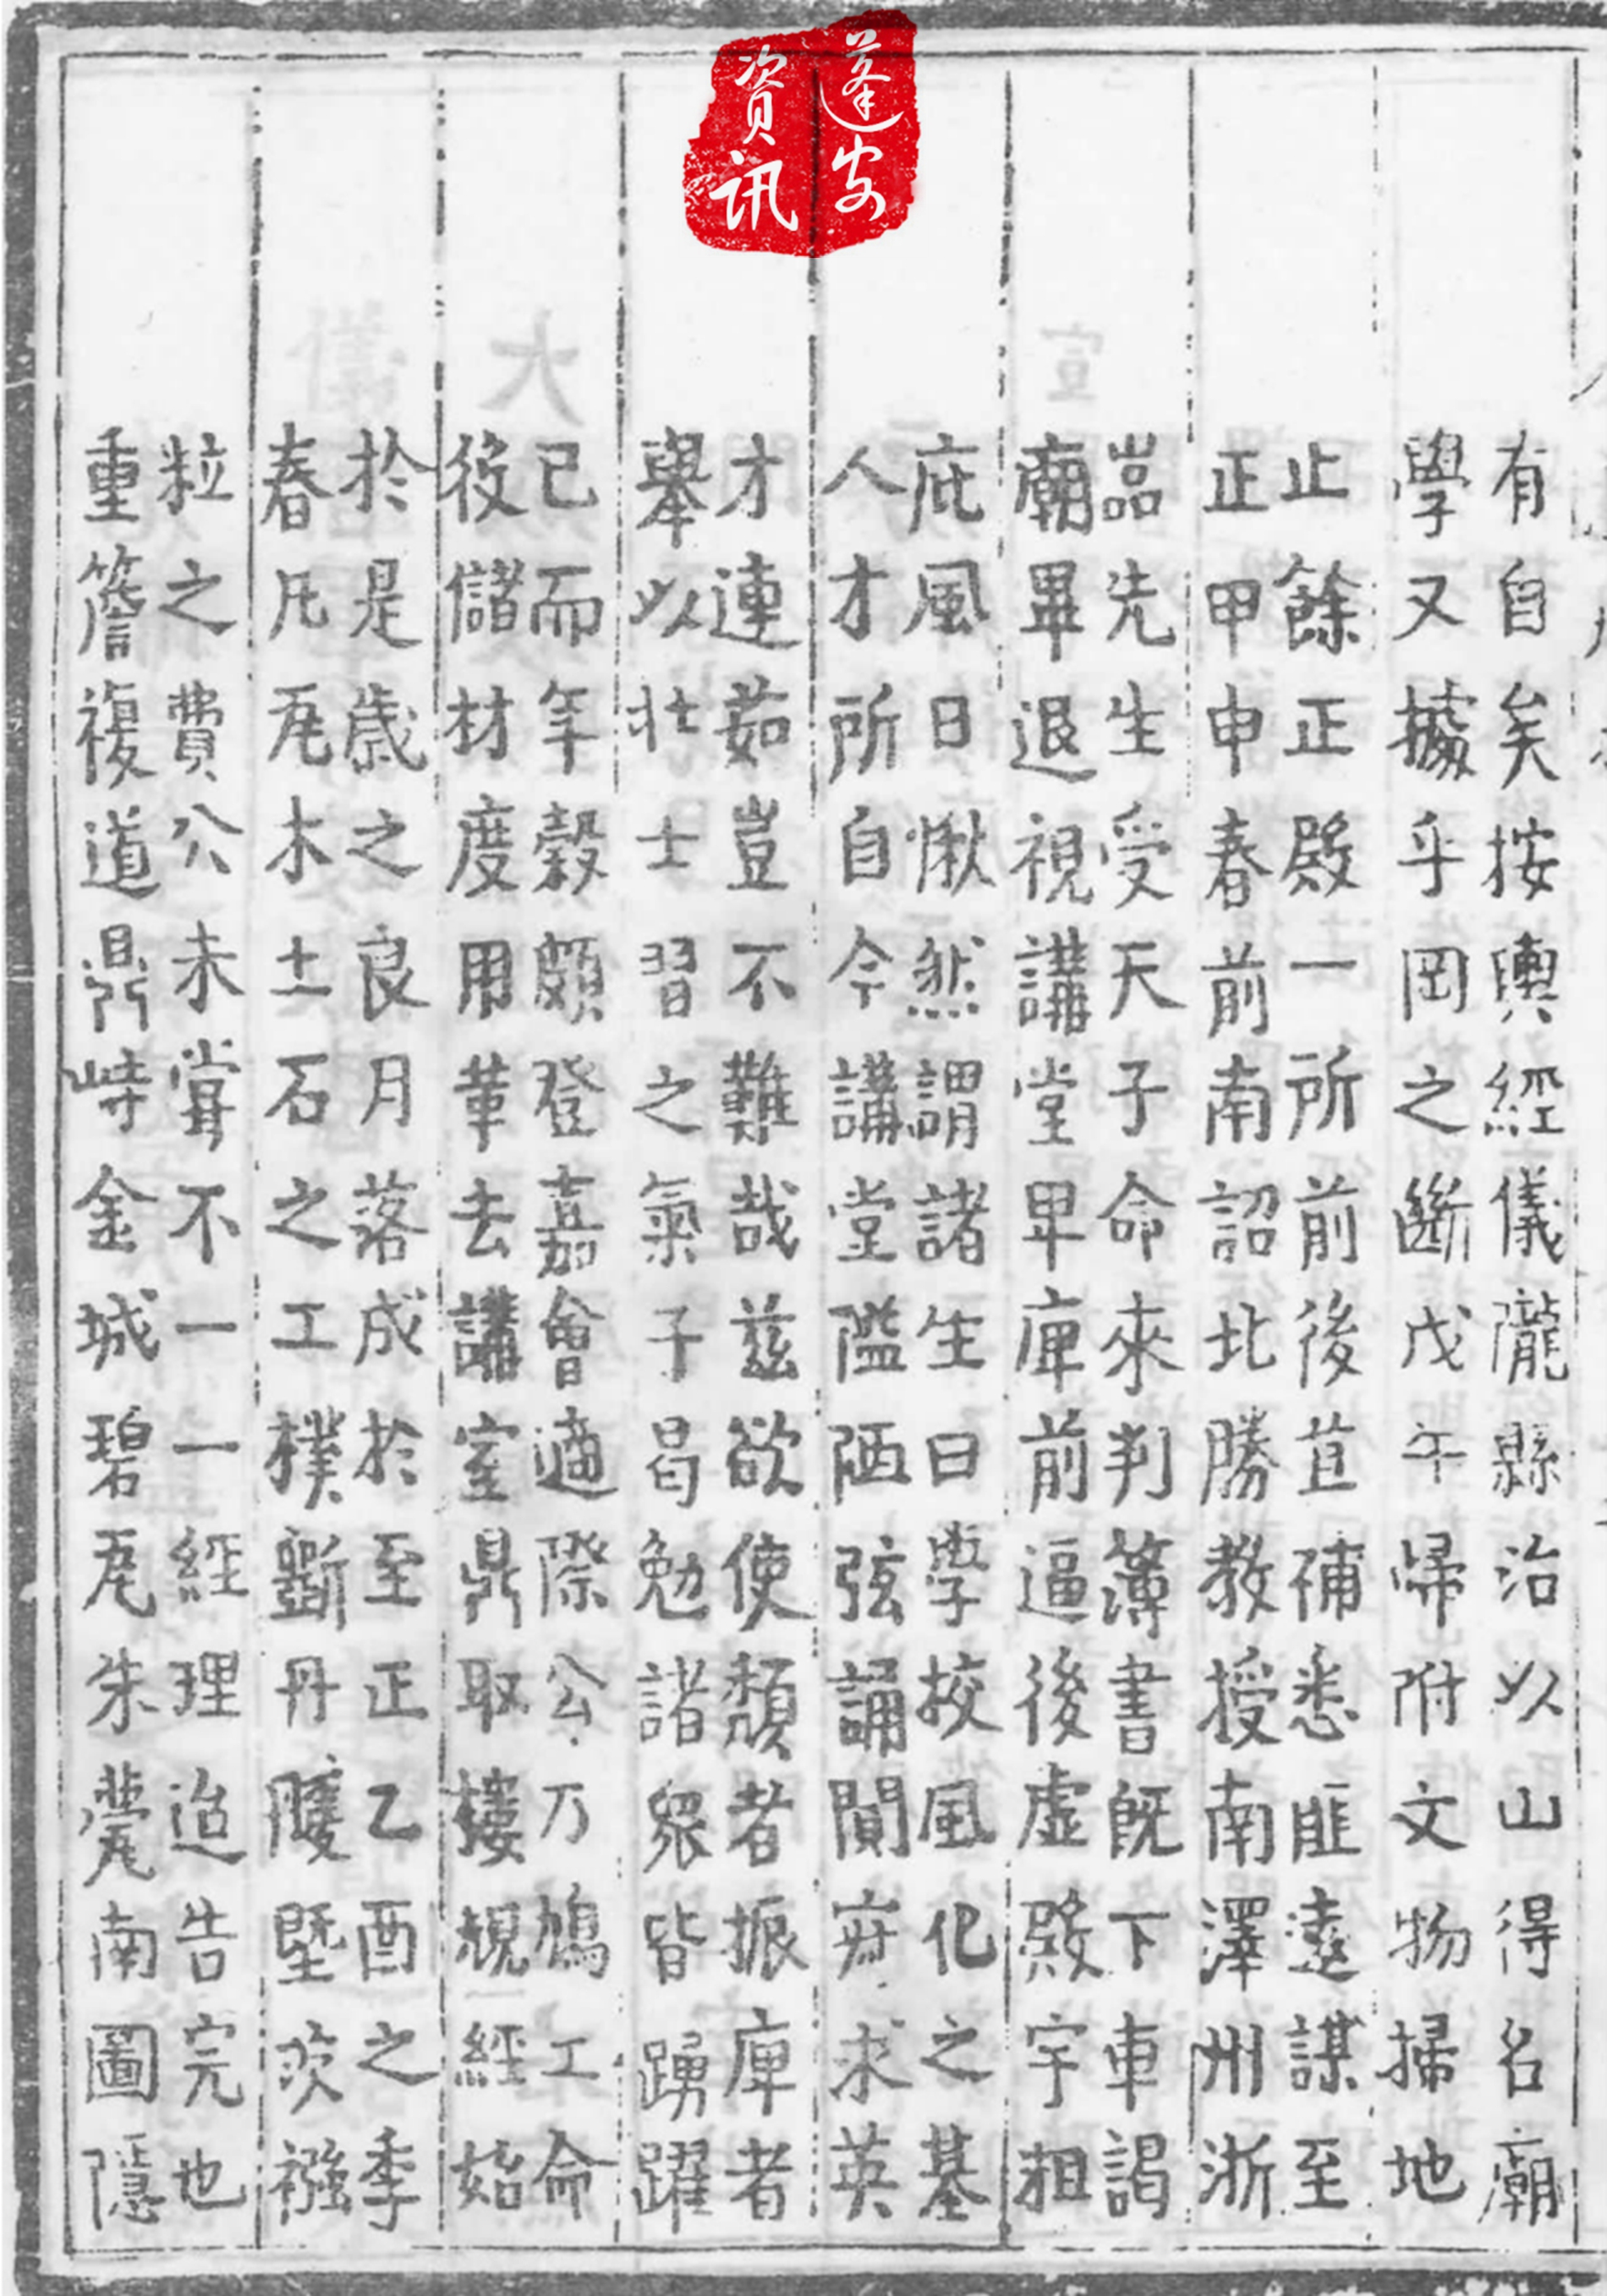 蓬安
資訊
有自矣按輿經儀隴縣治以山得名廟
學又據乎岡之斷戊午歸附文物掃地
止餘正殿一所前後苴補悉匪遠謀至
正甲申春前南詔北勝教授南澤州浙
嵓先生受天子命來判簿書既下車謁
廟畢退視講堂卑庳前逼後虛殿宇粗
庇風日愀然謂諸生曰學挍風化之基
人才所自今講堂隘陋弦誦閴寂求英
才連茹豈不難哉兹欲使頹者振庳者
舉以壯士習之氣子曷勉諸衆皆踴躍
已而年穀頗登嘉會適際公乃鳩工命
役儲材度用革去講室鼎取樓規經始
於是歲之良月落成於至正乙酉之季
春凡瓦木土石之工樸斲丹雘塈茨襁
粒之費公未嘗不一一經理迨告完也
重簷複道鼎峙金城碧瓦朱甍南圖隱